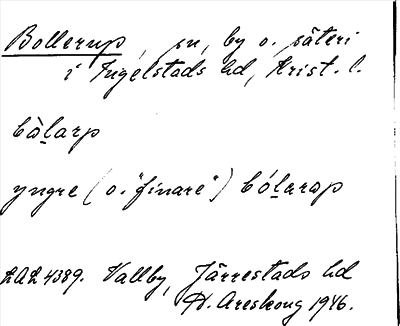 Bollerup, sn, by o. säteri
i Ingelstads hd, Krist. l.
bòlarp
yngre (o. "finare") bólarəp
LAL 4389. Vallby, Järrestads hd
H. Areskoug 1946.